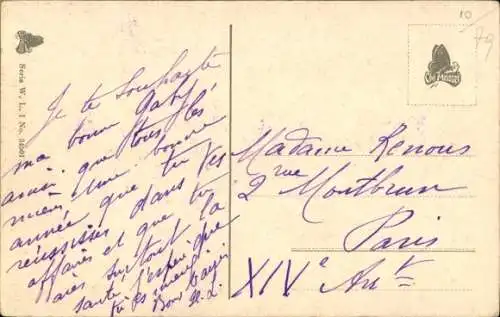 Serie W. L. I No.
Je te souhaite
ma bonne Gaby
ainsi que tous les
miens une bonne
année que tu
réussisses dans tes
affaires et que tu
aies surtout la
santé. J'espère que
tu es
Bon baiser
Madame Renous
2 rue Montbrun
Paris
XIVe Art
10